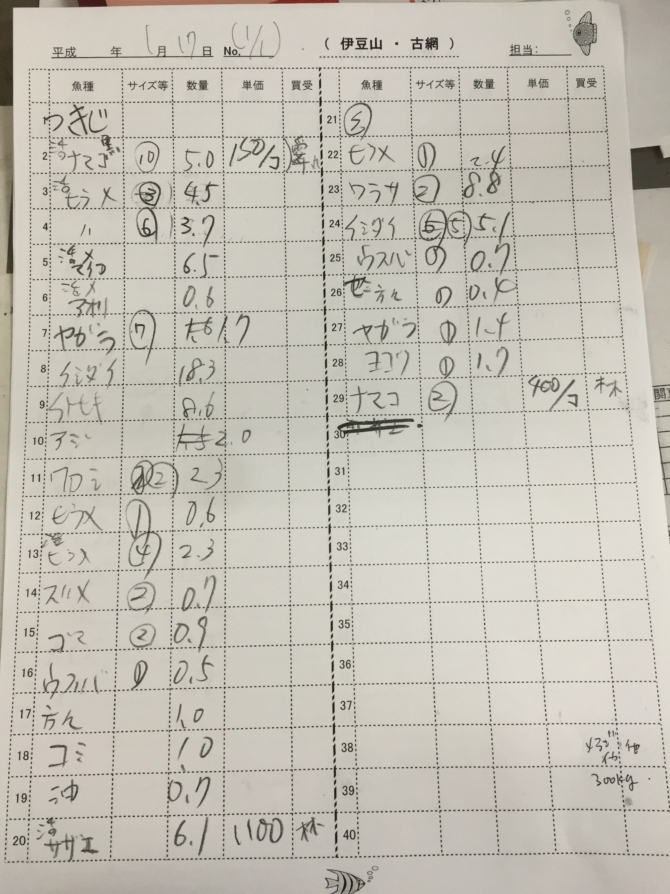 平成 年 1月17日 No. (1/1) ( 伊豆山 ・ 古網 ) 担当:
魚種 サイズ等 数量 単価 買受
1 つきじ
2 活ナマコ 黒 ⑩ 5.0 150/コ
3 活ヒラメ ③ 4.5
4 〃 ⑥ 3.7
5 活〆 6.5
6 活〆 アオリ 0.6
7 ヤガラ ⑦ 1.7
8 イシダイ 18.3
9 イトヒキ 8.6
10 アジ 2.0
11 ワロミ ② 2.3
12 ヒラメ ① 0.6
13 活ヒラメ ④ 2.3
14 ズリメ ② 0.7
15 ゴマ ② 0.9
16 ウスバ ① 0.5
17 方々 1.0
18 コミ 1.0
19 油 0.7
20 活サザエ 6.1 1100 林
魚種 サイズ等 数量 単価 買受
21
22 ヒラメ ① 2.4
23 ワラサ ② 8.8
24 イシダイ ⑤ 5.1
25 ウスバ の 0.7
26 方々 の 0.4
27 ヤガラ ① 1.4
28 ヨコワ ① 1.7
29 ナマコ ② 400/コ 林
30
31
32
33
34
35
36
37
38
39 300kg
40